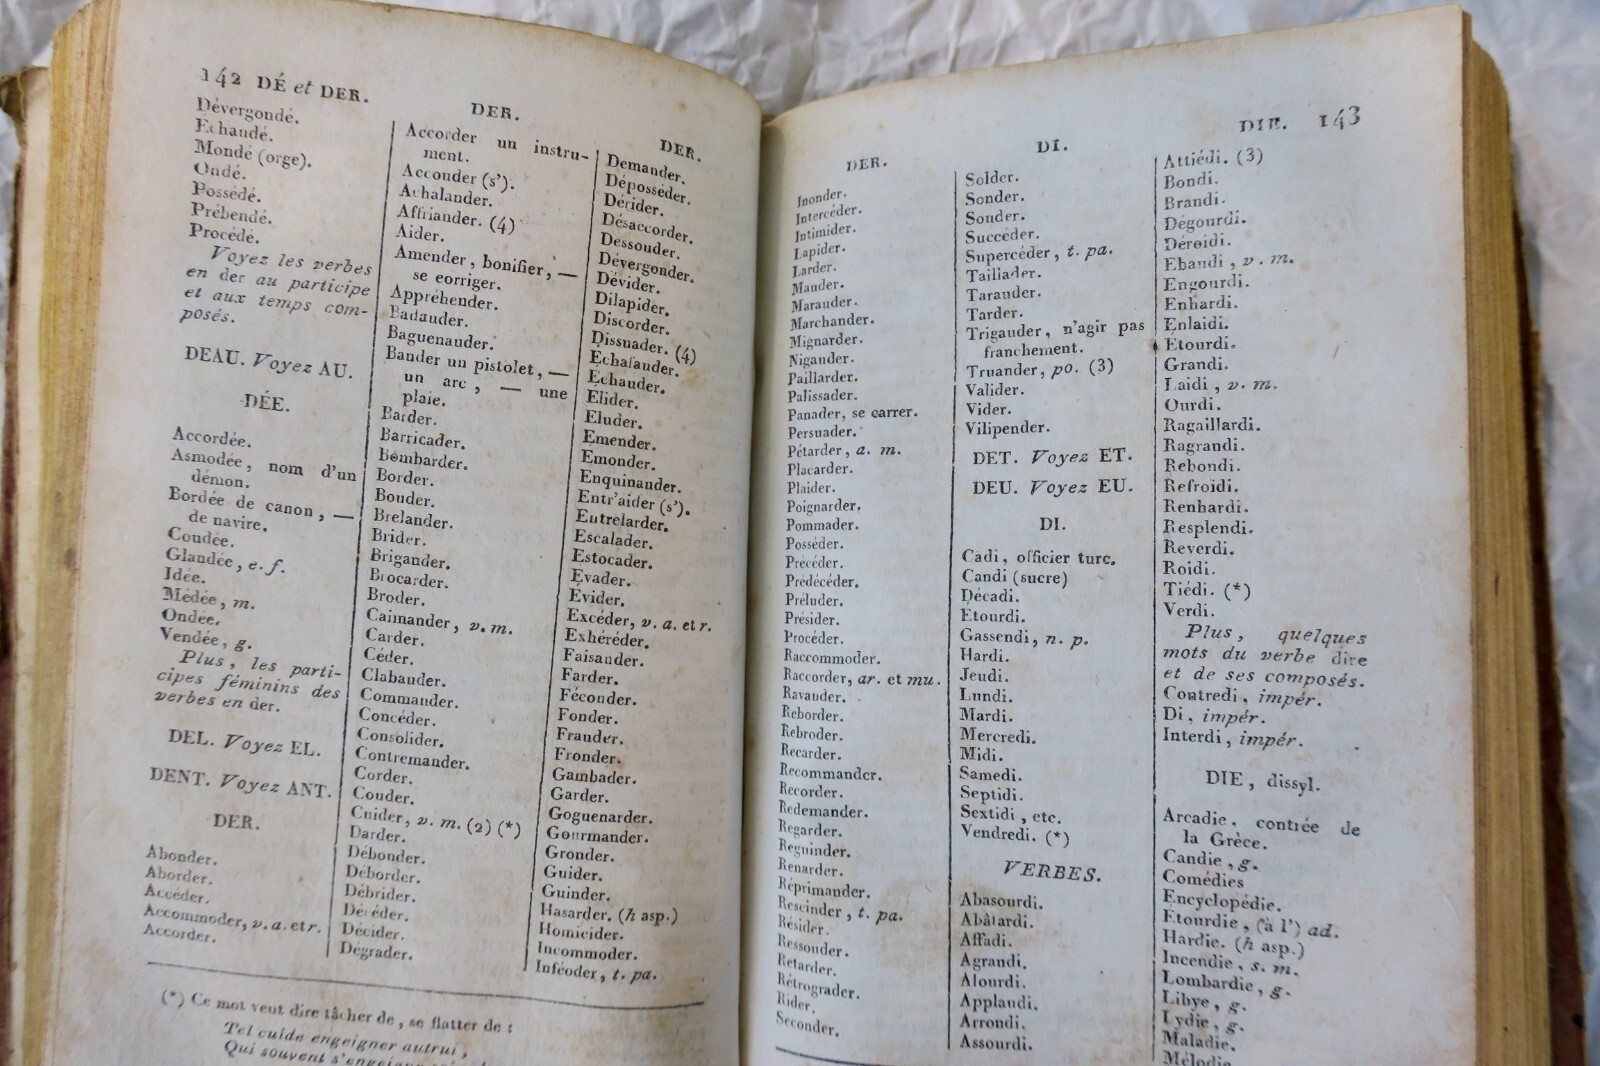 142 DÉ et DER.
Dévergondé.
Echaudé.
Mondé (orge).
Ondé.
Possédé.
Prébendé.
Procédé.
Voyez les verbes
en der au participe
et aux temps com-
posés.
DEAU. Voyez AU.
DÉE.
Accordée.
Asmodée, nom d'un
démon.
Bordée de canon, —
de navire.
Coudée.
Glandée, e. f.
Idée.
Médée, m.
Ondée.
Vendée, g.
Plus, les parti-
cipes féminins des
verbes en der.
DEL. Voyez EL.
DENT. Voyez ANT.
DER.
Abonder.
Aborder.
Accéder.
Accommoder, v. a. et r.
Accorder.
DER.
Accorder un instru-
ment.
Accouder (s').
Achalander.
Affriander. (4)
Aider.
Amender, bonifier, —
se eorriger.
Appréhender.
Badauder.
Baguenauder.
Bander un pistolet, —
un arc, — une
plaie.
Barder.
Barricader.
Bombarder.
Border.
Bouder.
Brelander.
Brider.
Brigander.
Brocarder.
Broder.
Caimander, v. m.
Carder.
Céder.
Clabauder.
Commander.
Concéder.
Consolider.
Contremander.
Corder.
Couder.
Cuider, v. m. (2) (*)
Darder.
Débonder.
Déborder.
Débrider.
Décéder.
Décider.
Dégrader.
DER.
Demander.
Déposséder.
Dérider.
Désaccorder.
Dessouder.
Dévergonder.
Dévider.
Dilapider.
Discorder.
Dissuader. (4)
Echafauder.
Echauder.
Elider.
Eluder.
Emender.
Emonder.
Enquinauder.
Entr'aider (s').
Entrelarder.
Escalader.
Estocader.
Evader.
Evider.
Excéder, v. a. et r.
Exhéréder.
Faisander.
Farder.
Féconder.
Fonder.
Frauder.
Fronder.
Gambader.
Garder.
Goguenarder.
Gourmander.
Gronder.
Guider.
Guinder.
Hasarder. (h asp.)
Homicider.
Incommoder.
Inféoder, t. pa.
(*) Ce mot veut dire tâcher de, se flatter de :
Tel cuide engeigner autrui,
Qui souvent s'engeigne
DIE. 143
DER.
Inonder.
Intercéder.
Intimider.
Lapider.
Larder.
Mander.
Marauder.
Marchander.
Mignarder.
Nigauder.
Paillarder.
Palissader.
Panader, se carrer.
Persuader.
Pétarder, a. m.
Placarder.
Plaider.
Poignarder.
Pommader.
Posséder.
Précéder.
Prédécéder.
Préluder.
Présider.
Procéder.
Raccommoder.
Raccorder, ar. et mu.
Ravauder.
Reborder.
Rebroder.
Recarder.
Recommander.
Recorder.
Redemander.
Regarder.
Reguinder.
Renarder.
Réprimander.
Rescinder, t. pa.
Résider.
Ressouder.
Retarder.
Rétrograder.
Rider.
Seconder.
DI.
Solder.
Sonder.
Souder.
Succéder.
Supercéder, t. pa.
Taillader.
Tarauder.
Tarder.
Trigauder, n'agir pas
franchement.
Truander, po. (3)
Valider.
Vider.
Vilipender.
DET. Voyez ET.
DEU. Voyez EU.
DI.
Cadi, officier turc.
Candi (sucre)
Décadi.
Etourdi.
Gassendi, n. p.
Hardi.
Jeudi.
Lundi.
Mardi.
Mercredi.
Midi.
Samedi.
Septidi.
Sextidi, etc.
Vendredi. (*)
VERBES.
Abasourdi.
Abâtardi.
Affadi.
Agrandi.
Alourdi.
Applaudi.
Arrondi.
Assourdi.
Attiédi. (3)
Bondi.
Brandi.
Dégourdi.
Déroidi.
Ebaudi, v. m.
Engourdi.
Enhardi.
Enlaidi.
Etourdi.
Grandi.
Laidi, v. m.
Ourdi.
Ragaillardi.
Ragrandi.
Rebondi.
Refroidi.
Renhardi.
Resplendi.
Reverdi.
Roidi.
Tiédi. (*)
Verdi.
Plus, quelques
mots du verbe dire
et de ses composés.
Contredi, impér.
Di, impér.
Interdi, impér.
DIE, dissyl.
Arcadie, contrée de
la Grèce.
Candie, g.
Comédies
Encyclopédie.
Etourdie, (à l') ad.
Hardie. (h asp.)
Incendie, s. m.
Lombardie, g.
Libye, g.
Lydie, g.
Maladie.
Mélodie